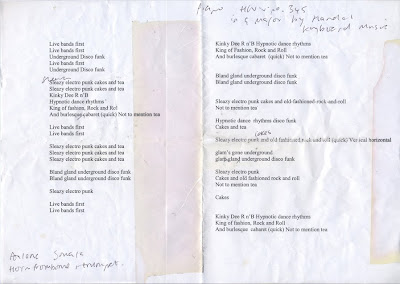 Live bands first
Live bands first
Live bands first
Underground Disco funk
Live bands first
Underground Disco funk
Sleazy electro punk cakes and tea
Sleazy electro punk cakes and tea
Kinky Dee R n'B
Hypnotic dance rhythms
King of Fashion, Rock and Rol
And burlesque cabaret (quick) Not to mention tea
Live bands first
Live bands first
Sleazy electro punk cakes and tea
Sleazy electro punk cakes and tea
Sleazy electro punk cakes and tea
Bland gland underground disco funk
Bland gland underground disco funk
Sleazy electro punk
Live bands first
Live bands first
horn trombone trumpet.
in G major by Handel
keyboard music
Kinky Dee R n'B Hypnotic dance rhythms
King of Fashion, Rock and Roll
And burlesque cabaret (quick) Not to mention tea
Bland gland underground disco funk
Bland gland underground disco funk
Sleazy electro punk cakes and old fashioned rock and roll
Not to mention tea
Hypnotic dance rhythms disco funk
Cakes and tea
cakes
Sleazy electro punk and old fashioned rock and roll (quick) Vertical horizontal
glam's gone underground
gland underground disco funk
Sleazy electro punk
Cakes and old fashioned rock and roll
Not to mention tea
Cakes
Kinky Dee R n'B Hypnotic dance rhythms
King of Fashion, Rock and Roll
And burlesque cabaret (quick) Not to mention tea